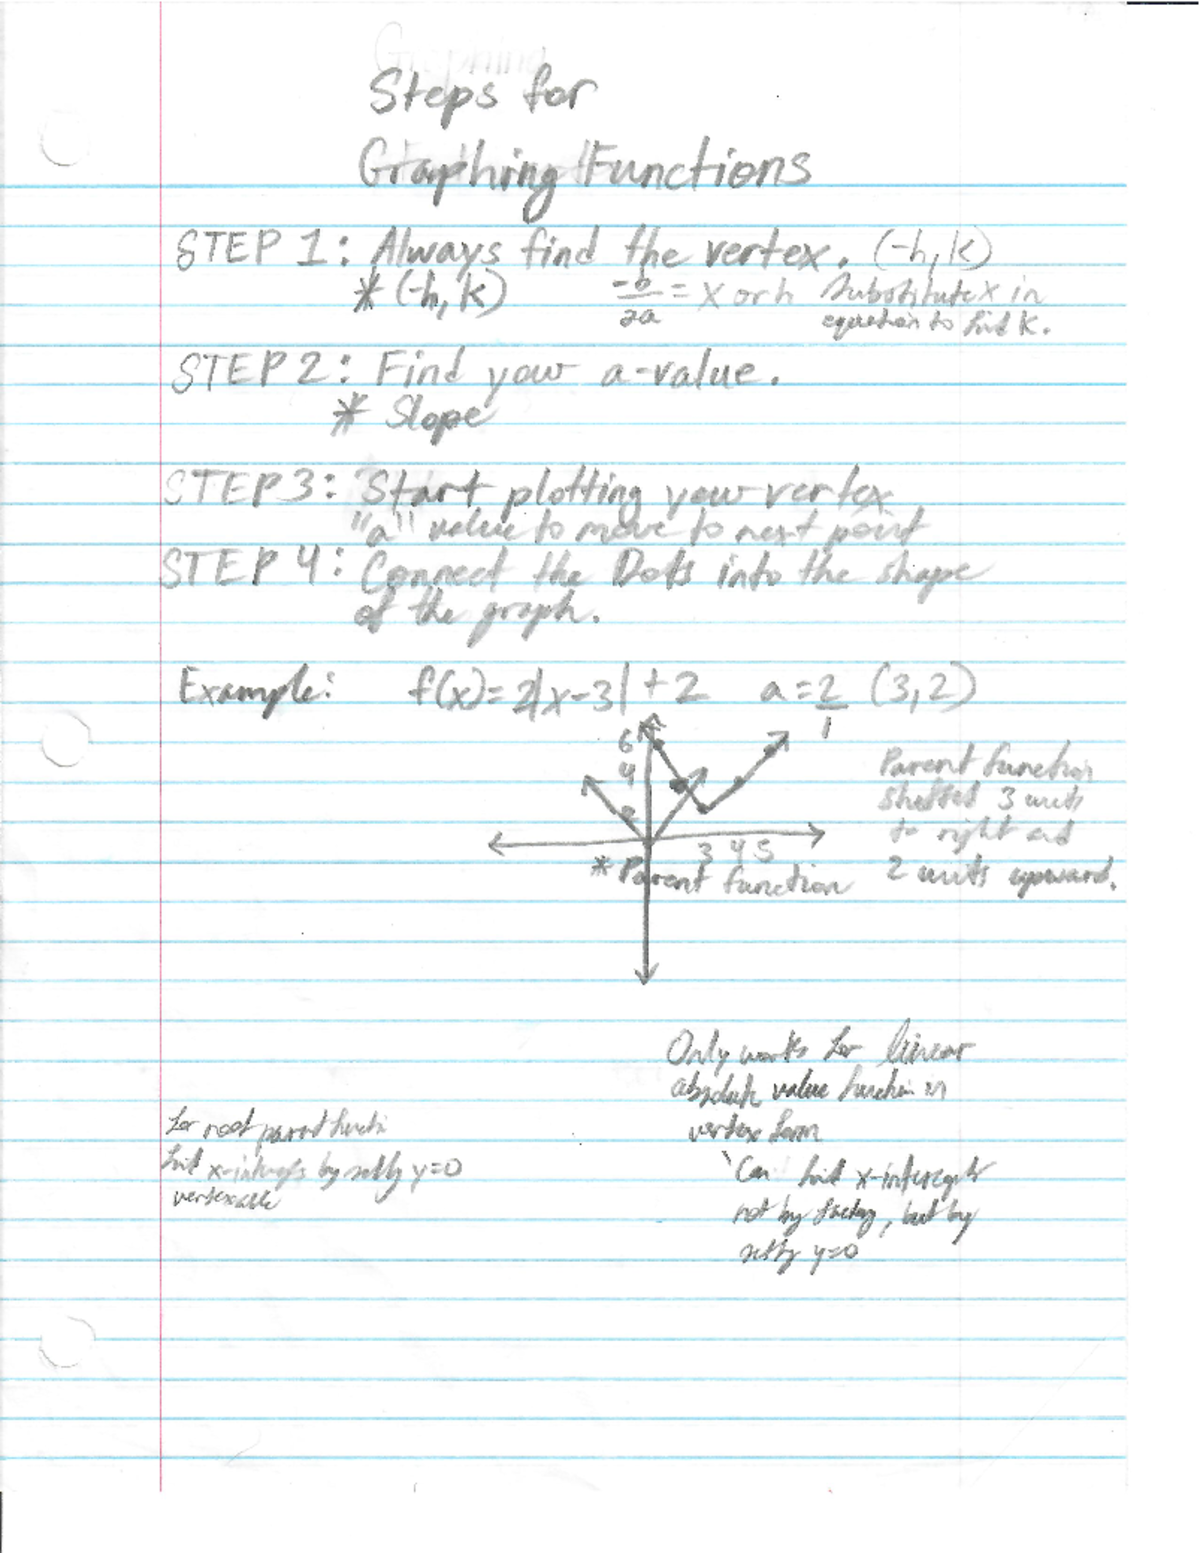 Graphing
Steps for
Graphing Functions
STEP 1: Always find the vertex. (-h, k)
* (-h, k) -b/2a = x or h Substitute x in
equation to find k.
STEP 2: Find your a-value.
* Slope
STEP 3: Start plotting your vertex
"a" value to move to next point
STEP 4: Connect the Dots into the shape
of the graph.
Example: f(x)= 2|x-3| + 2 a = 2/1 (3,2)
6
4
2
3 4 5
* Parent function
Parent function
shifted 3 units
to right and
2 units upward.
Only works for linear
absolute value function in
vertex form
Can find x-intercepts
not by factoring, but by
y=0
for root parent functi
find x-intercepts by y=0